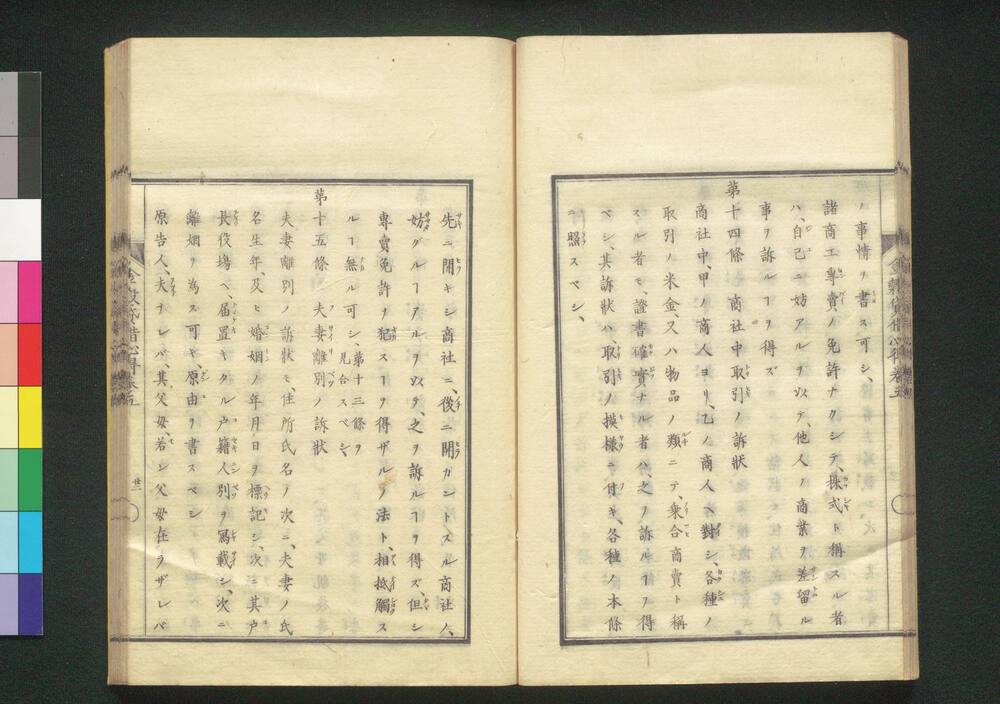 ノ事情ヲ書ス可シ、
諸商工專賣ノ免許ナクシテ、株式ト稱スル者
ハ、自己ニ妨アルヲ以テ、他人ノ商業ヲ差留ル
事ヲ訴ルヿヲ得ズ
第十四條 商社中取引ノ訴狀
商社中、甲ノ商人ヨリ、乙ノ商人ヘ對シ、各種ノ
取引ノ米金、又ハ物品ノ類ニテ、乗合商賣ト稱
スル者モ、證書確實ナル者ハ、之ヲ訴ルヿヲ得
ベシ、其訴狀ハ、取引ノ模樣ニ付キ、各種ノ本條
ニ照スベシ、
先ニ開キシ商社ニ、後ニ開カントスル商社ハ、
妨グルヿアルヲ以テ、之ヲ訴ルヿヲ得ズ、但シ
專賣免許ヲ犯スヿヲ得ザルノ法ト、相抵觸ス
ルヿ無ル可シ、第十三條ヲ見合スベシ、
第十五條 夫妻離別ノ訴狀
夫妻離別ノ訴狀モ、住所氏名ノ次ニ、夫妻ノ氏
名生年、及ヒ婚姻ノ年月日ヲ標記シ、次ニ其戶
長役場ヘ、届置キタル戶籍人別ヲ寫載シ、次ニ
離姻ヲ為ス可キ、原由ヲ書スベシ
原告人、夫ナレバ、其父母、若シ父母在ラザレバ
金穀貸借心得卷五
廿一